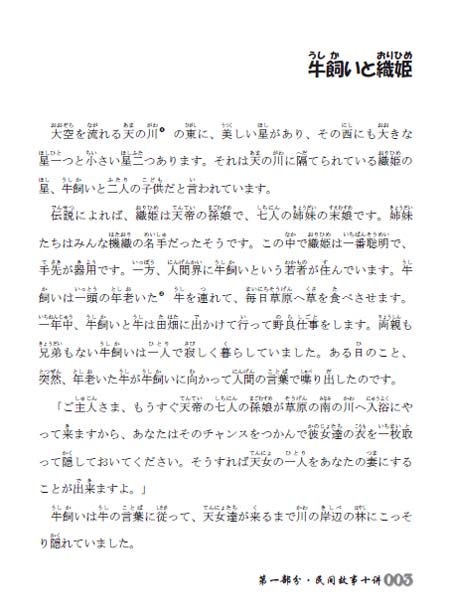 牛飼いと織姫
大空を流れる天の川❶ の東に、美しい星があり、その西にも大きな
星一つと小さい星二つあります。それは天の川に隔てられている織姫の
星、牛飼いと二人の子供だと言われています。
伝説によれば、織姫は天帝の孫娘で、七人の姉妹の末娘です。姉妹
たちはみんな機織の名手だったそうです。この中で織姫は一番聡明で、
手先が器用です。一方、人間界に牛飼いという若者が住んでいます。牛
飼いは一頭の年老いた❷ 牛を連れて、毎日草原へ草を食べさせます。
一年中、牛飼いと牛は田畑に出かけて行って野良仕事をします。両親も
兄弟もない牛飼いは一人で寂しく暮らしていました。ある日のこと、
突然、年老いた牛が牛飼いに向かって人間の言葉で喋り出したのです。
「ご主人さま、もうすぐ天帝の七人の孫娘が草原の南の川へ入浴にや
って来ますから、あなたはそのチャンスをつかんで彼女達の衣を一枚取
って隠しておいてください。そうすれば天女の一人をあなたの妻にする
ことが出来ますよ。」
牛飼いは牛の言葉に従って、天女達が来るまで川の岸辺の林にこっそ
り隠れていました。
第一部分·民间故事十讲 003